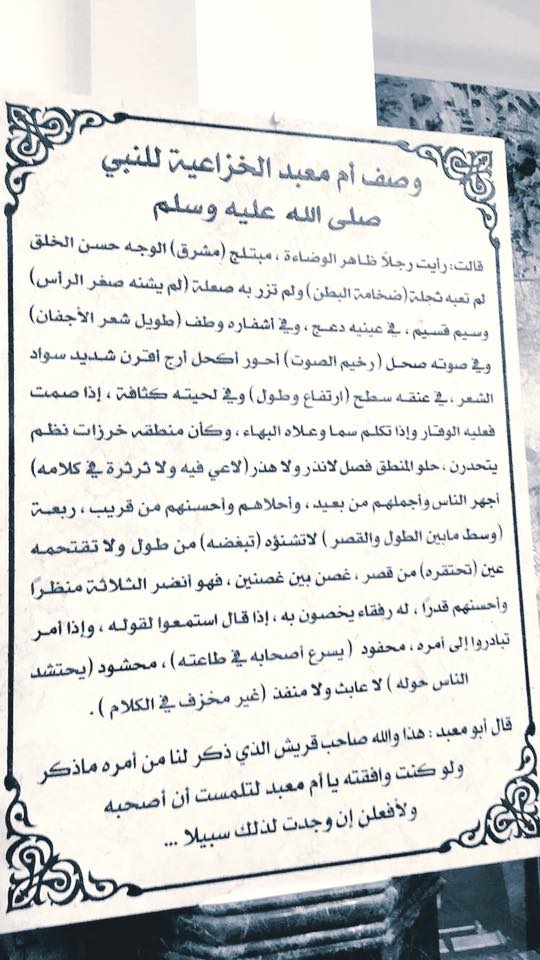 وصف أم معبد الخزاعية للنبي
صلى الله عليه وسلم
قالت: رأيت رجلاً ظاهر الوضاءة ، مبتلج (مشرق) الوجه حسن الخلق
لم تعبه ثجلة (ضخامة البطن) ولم تزر به صعلة (لم يشنه صغر الرأس)
وسيم قسيم ، في عينيه دعج ، وفي أشفاره وطف (طويل شعر الأجفان)
وفي صوته صحل (رخيم الصوت) أحور أكحل أرج أقرن شديد سواد
الشعر ، في عنقه سطح (ارتفاع وطول) وفي لحيته كثافة ، إذا صمت
فعليه الوقار وإذا تكلم سما وعلاه البهاء ، وكأن منطقه خرزات نظم
يتحدرن ، حلو المنطق فصل لانذر ولا هذر (لاعي فيه ولا ثرثرة في كلامه)
أجهر الناس وأجملهم من بعيد ، وأحلاهم وأحسنهم من قريب ، ربعة
(وسط مابين الطول والقصر) لاتشنؤه (تبغضه) من طول ولا تقتحمه
عين (تحتقره) من قصر ، غصن بين غصنين ، فهو أنضر الثلاثة منظرًا
وأحسنهم قدرًا ، له رفقاء يخصون به ، إذا قال استمعوا لقوله ، وإذا أمر
تبادروا إلى أمره ، محفود (يسرع أصحابه في طاعته) ، محشود (يحتشد
الناس حوله) لا عابث ولا منفذ (غير مخزف في الكلام) .
قال أبو معبد : هذا والله صاحب قريش الذي ذكر لنا من أمره ماذكر
ولو كنت وافقته يا أم معبد لتلمست أن أصحبه
ولأفعلن إن وجدت لذلك سبيلا ...